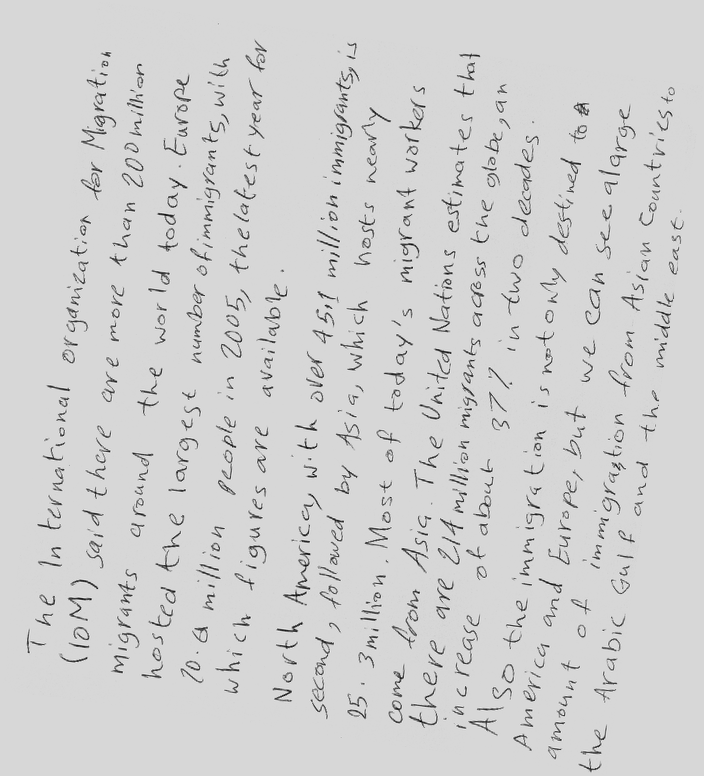 The International organization for Migration
(IOM) said there are more than 200 million
migrants around the world today. Europe
hosted the largest number of immigrants, with
70.6 million people in 2005, the latest year for
which figures are available.
North America, with over 45,1 million immigrants, is
second, followed by Asia, which hosts nearly
25.3 million. Most of today's migrant workers
come from Asia. The United Nations estimates that
there are 214 million migrants across the globe, an
increase of about 37% in two decades.
Also the immigration is not only destined to
America and Europe, but we can see a large
amount of immigration from Asian Countries to
the Arabic Gulf and the middle east.